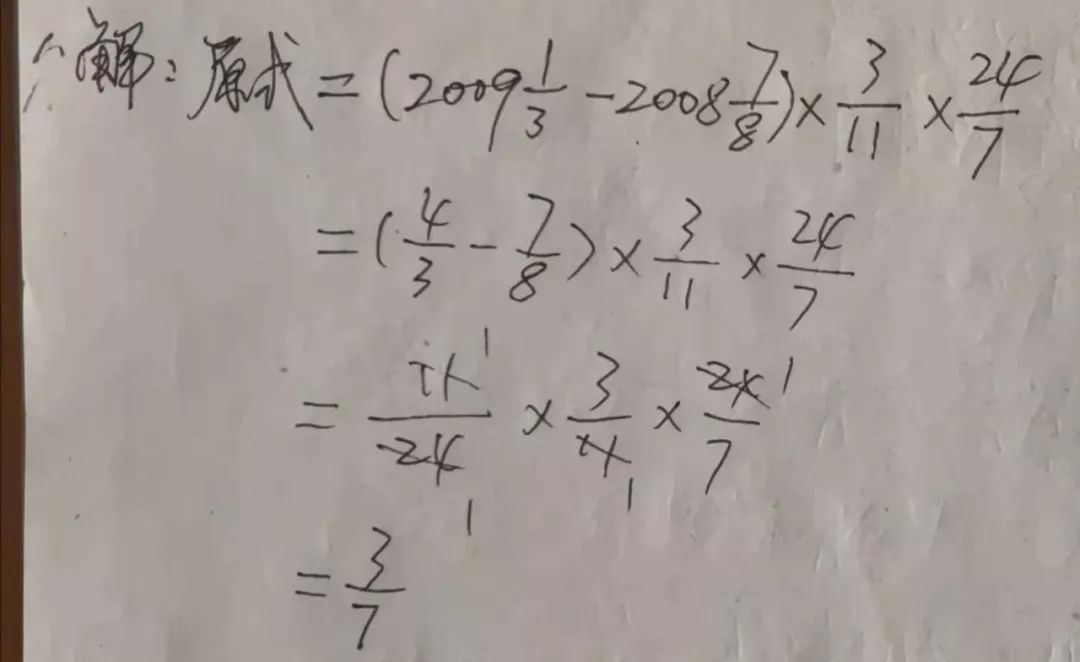 解：原式=(2009 1/3 - 2008 7/8) × 3/11 × 24/7
=(4/3 - 7/8) × 3/11 × 24/7
= 11 1/24 1 × 3/11 1 × 24 1/7
= 3/7